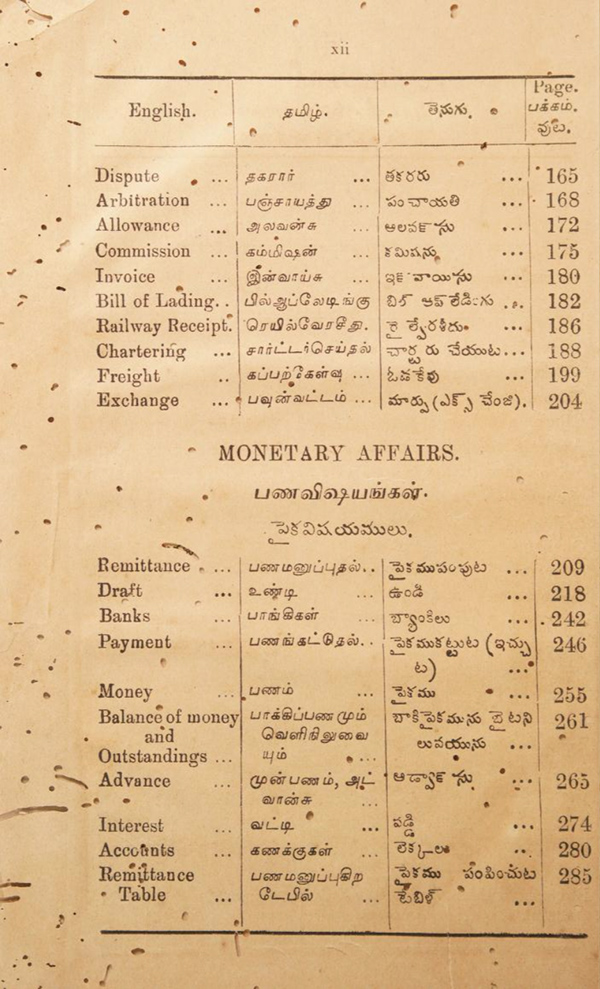 xii
English. தமிழ். తెలుగు. Page. பக்கம். పుట.
Dispute ... தகரார் ... తకరరు ... 165
Arbitration ... பஞ்சாயத்து ... పంచాయతి ... 168
Allowance ... அலவன்சு ... అలవక్సా ... 172
Commission ... கம்மிஷன் ... కమిషన్ను ... 175
Invoice ... இன்வாய்சு ... ... 180
Bill of Lading.. பில்ஆப்லேடிங்கு బిల్ ఆఫ్ లేడింగు ... 182
Railway Receipt. ரெயில்வேரசீது. రైల్వేరశీదు. ... 186
Chartering ... சார்ட்டர்செய்தல் చార్టరు చేయుట... 188
Freight .. கப்பற்கேள்வு ... ఓడకేవు ... 199
Exchange ... பவுன்வட்டம் ... మార్పు (ఎక్స్ చేంజి). 204
MONETARY AFFAIRS.
பணவிஷயங்கள்.
పైకవిషయములు.
Remittance ... பணமனுப்புதல்.. పైకముపంపుట ... 209
Draft ... உண்டி ... ఉండి ... 218
Banks ... பாங்கிகள் ... బ్యాంకీలు ... 242
Payment ... பணங்கட்டுதல்.. పైకముకట్టుట (ఇచ్చు 246
ట) ...
Money ... பணம் ... పైకము ... 255
Balance of money பாக்கிப்பணமும் బాకిపైకమును బైటని 261
and வெளிநிலுவை లువయును ...
Outstandings ... யும் ...
Advance ... முன்பணம், அட் ... 265
வான்சு ...
Interest ... வட்டி ... వడ్డి ... 274
Accounts ... கணக்குகள் ... లెక్కలు .. 280
Remittance பணமனுப்புகிற పైకము పంపించుట 285
Table ... டேபில் ... టేబిల్ ...